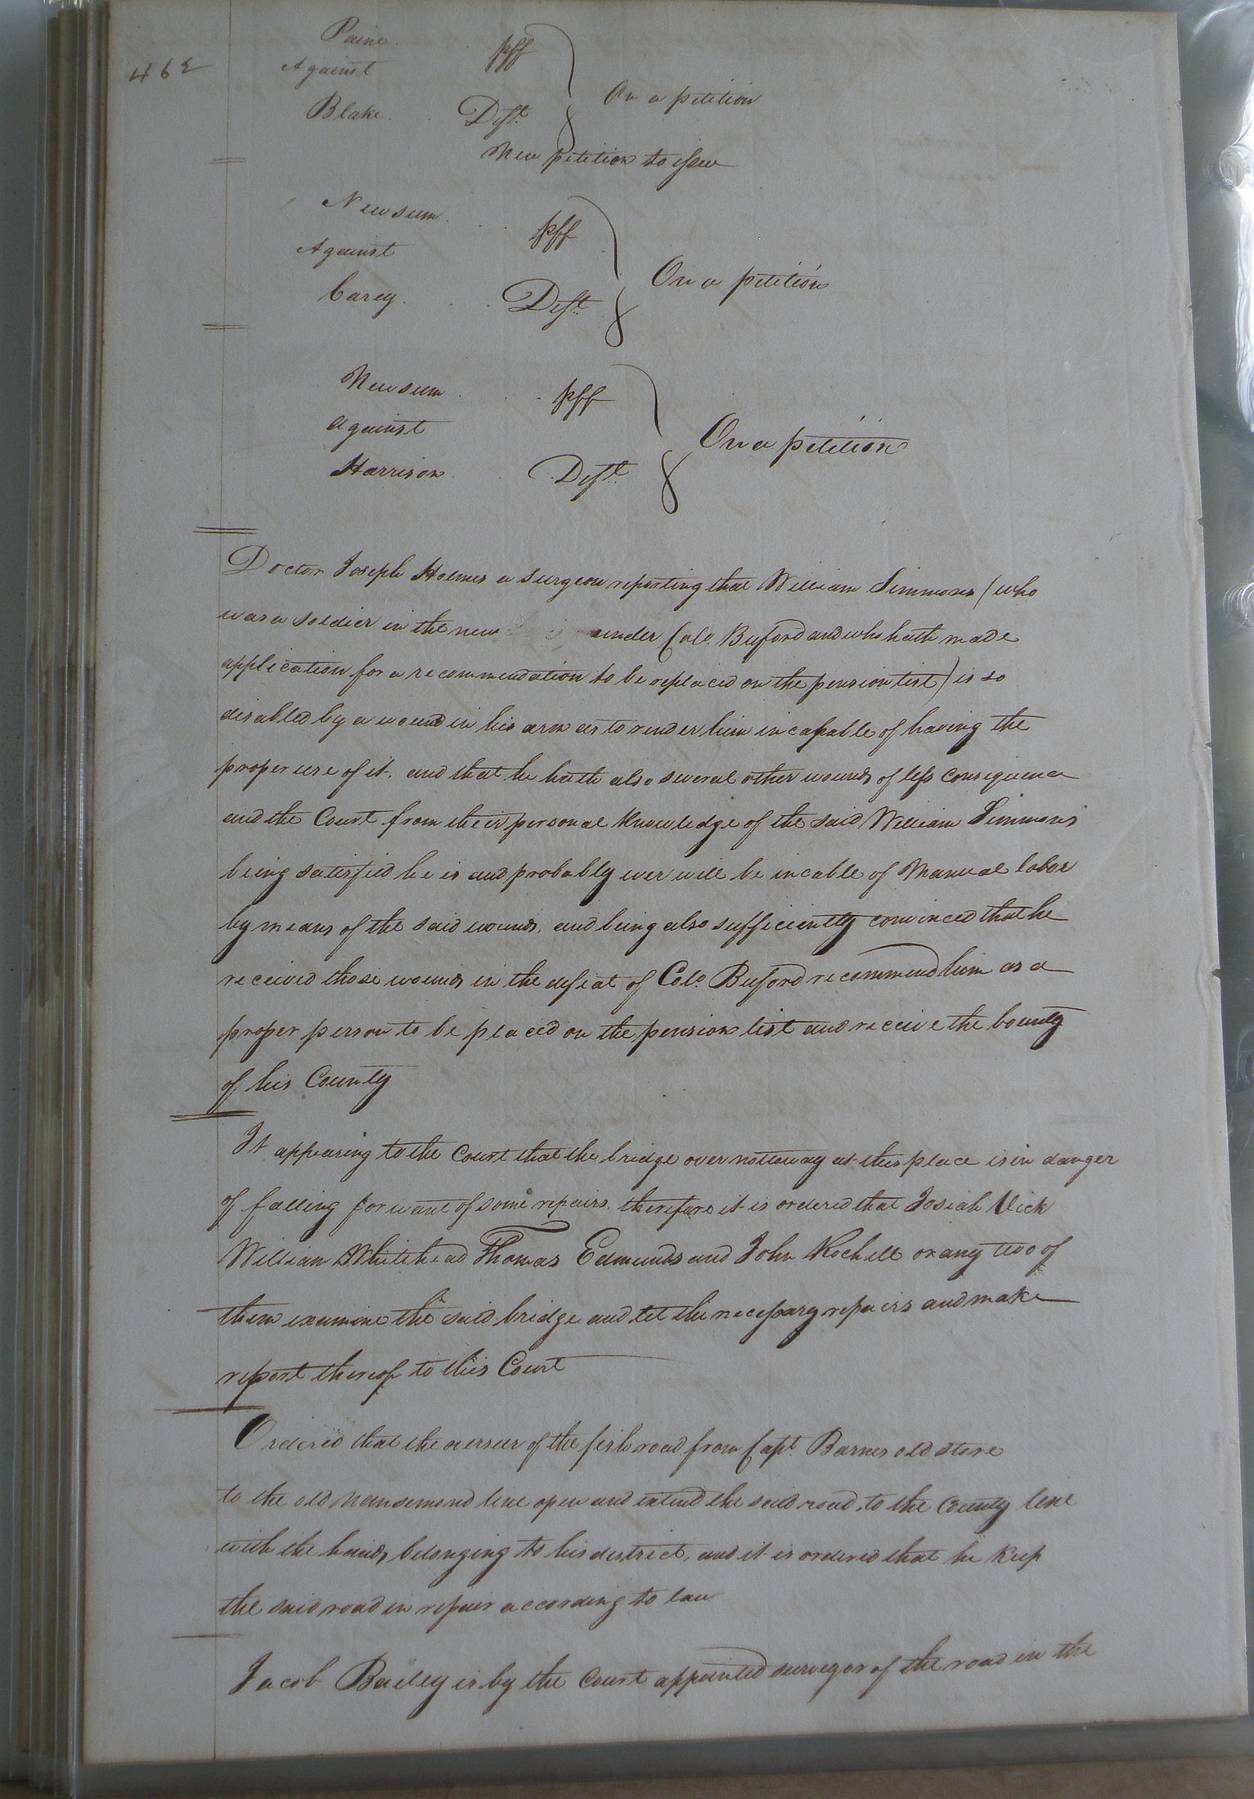 462
Paine pff
Against
On a petition
Blake Deft.
New petition to issue
Newsum pff
Against
On a petition
Carey Deft.
Newsum pff
against
On a petition
Harrison Deft.
Doctor Joseph Holmes a surgeon reporting that William Simmons (who
was a soldier in the new under Colo. Buford and who hath made
application for a recommendation to be replaced on the pension list) is so
disabled by a wound in his arm as to render him incapable of having the
proper use of it. and that he hath also several other wounds of less consequence
and the Court from their personal knowledge of the said William Simmons
being satisfied he is and probably ever will be incable of Manual labor
by means of the said wounds, and being also sufficiently convinced that he
received those wounds in the defeat of Colo. Buford recommend him as a
proper person to be placed on the pension list and receive the bounty
of his County
It appearing to the Court that the bridge over nottoway at this place is in danger
of falling for want of some repairs therefore it is ordered that Josiah Vick
William Whitehead Thomas Edmunds and John Rochell or any two of
them examine the said bridge and let the necessary repairs and make
report thereof to this Court
Ordered that the overseer of the road from Capt. Barnes old store
to the old nansemond line open and extend the said road to the County line
with the hands belonging to his district, and it is ordered that he keep
the said road in repair according to law
Jacob Bailey is by the Court appointed surveyor of the road in the